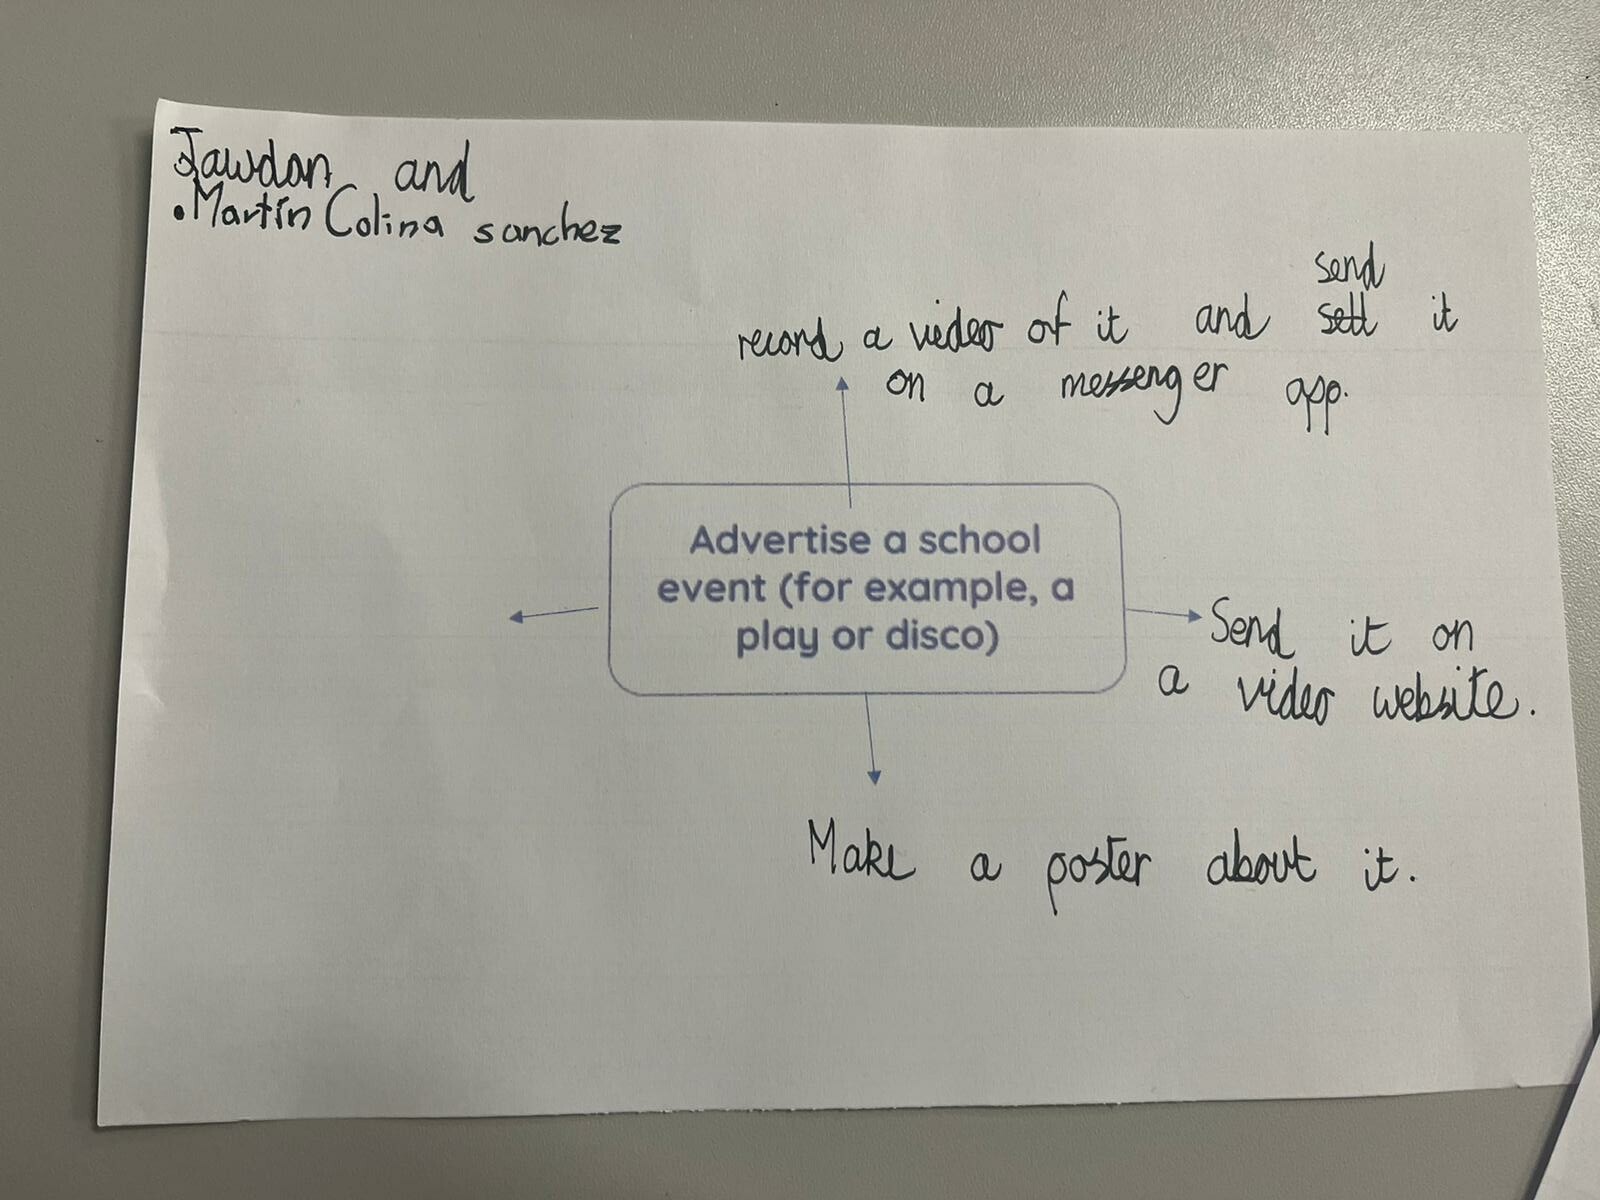 Jawdan and
• Martín Colina sanchez
send
record a video of it and sell it
on a messenger app.
Advertise a school
event (for example, a
play or disco)
Send it on
a video website.
Make a poster about it.